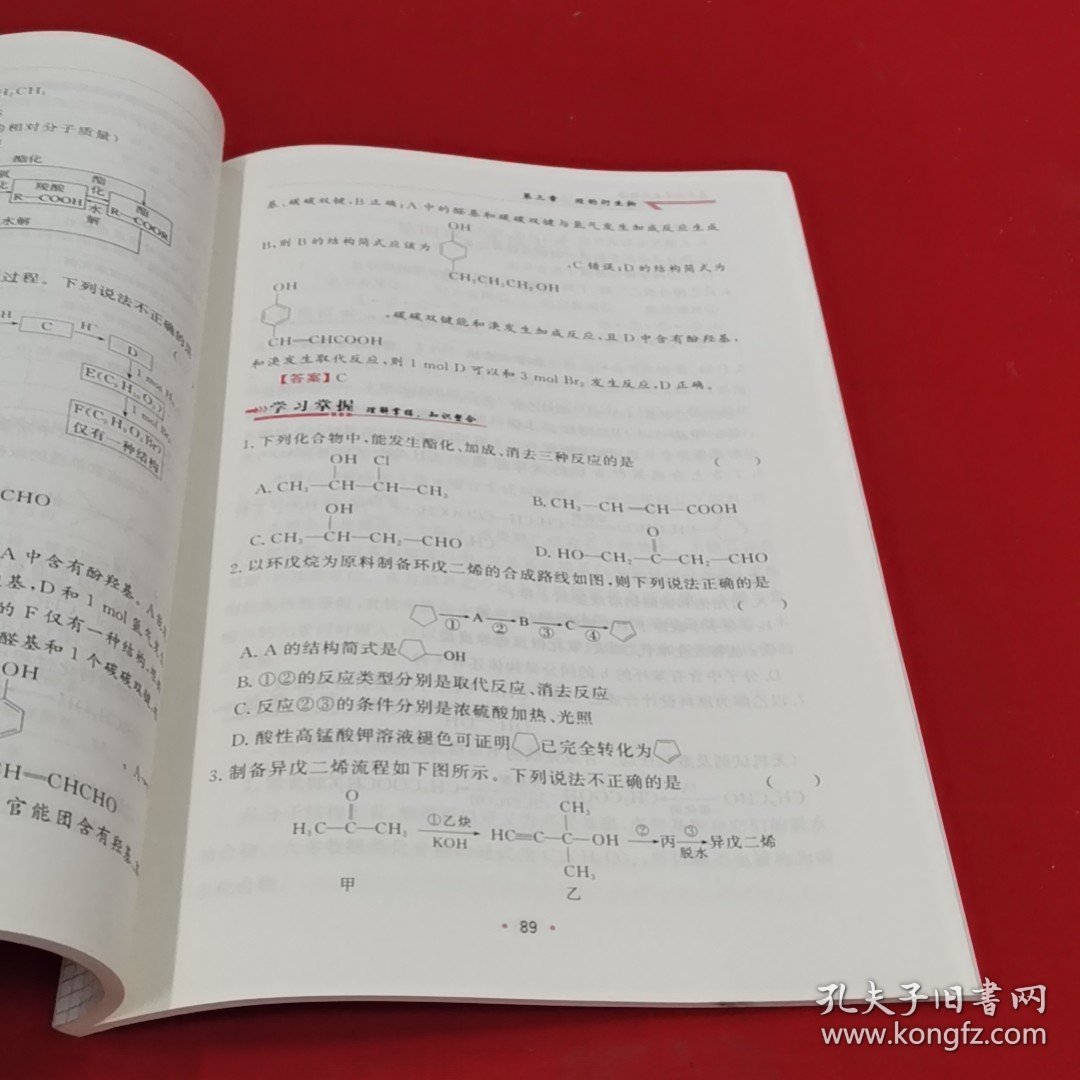 H₂CH₃
的相对分子质量)
酯化
羧酸
R—COOH
酯
化
水
解
酯
R—COOR
水解
过程。下列说法不正确的是
C
H⁺
D
1 mol H₂
E(C₉H₁₀O₃)
1 mol Br₂
仅有一种结构
CHO
A 中含有酚羟基。
基,D 和 1 mol 氢气
的 F 仅有一种结构,
醛基和 1 个碳碳双键,
OH
CH—CHCHO
官能团含有羟基、
第三章 烃的衍生物
基、碳碳双键,B 正确;A 中的醛基和碳碳双键与氢气发生加成反应生成
OH
B,则 B 的结构简式应该为 ,C 错误;D 的结构简式为
CH₂CH₂CH₂OH
OH
,碳碳双键能和溴发生加成反应,且 D 中含有酚羟基,
CH—CHCOOH
和溴发生取代反应,则 1 mol D 可以和 3 mol Br₂ 发生反应,D 正确。
【答案】C
学习掌握 理解掌握,知识整合
1. 下列化合物中,能发生酯化、加成、消去三种反应的是 ( )
OH Cl
A. CH₃—CH—CH—CH₃ B. CH₃—CH=CH—COOH
OH O
C. CH₃—CH—CH₂—CHO D. HO—CH₂—C—CH₂—CHO
2. 以环戊烷为原料制备环戊二烯的合成路线如图,则下列说法正确的是
( )
① A ② B ③ C ④
A. A 的结构简式是 —OH
B. ①②的反应类型分别是取代反应、消去反应
C. 反应②③的条件分别是浓硫酸加热、光照
D. 酸性高锰酸钾溶液褪色可证明 已完全转化为
3. 制备异戊二烯流程如下图所示。下列说法不正确的是 ( )
O CH₃
H₃C—C—CH₃ ①乙炔 KOH HC≡C—C—OH ② 丙 ③ 脱水 异戊二烯
CH₃
甲 乙
• 89 •
孔夫子旧書网
www.kongfz.com